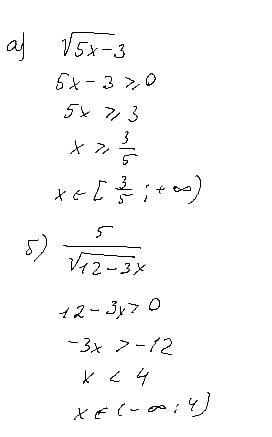 а) √(5x-3)
5x - 3 ⩾ 0
5x ⩾ 3
x ⩾ 3/5
x ∈ [3/5; +∞)
б) 5/√(12-3x)
12-3x > 0
-3x > -12
x < 4
x ∈ (-∞; 4)